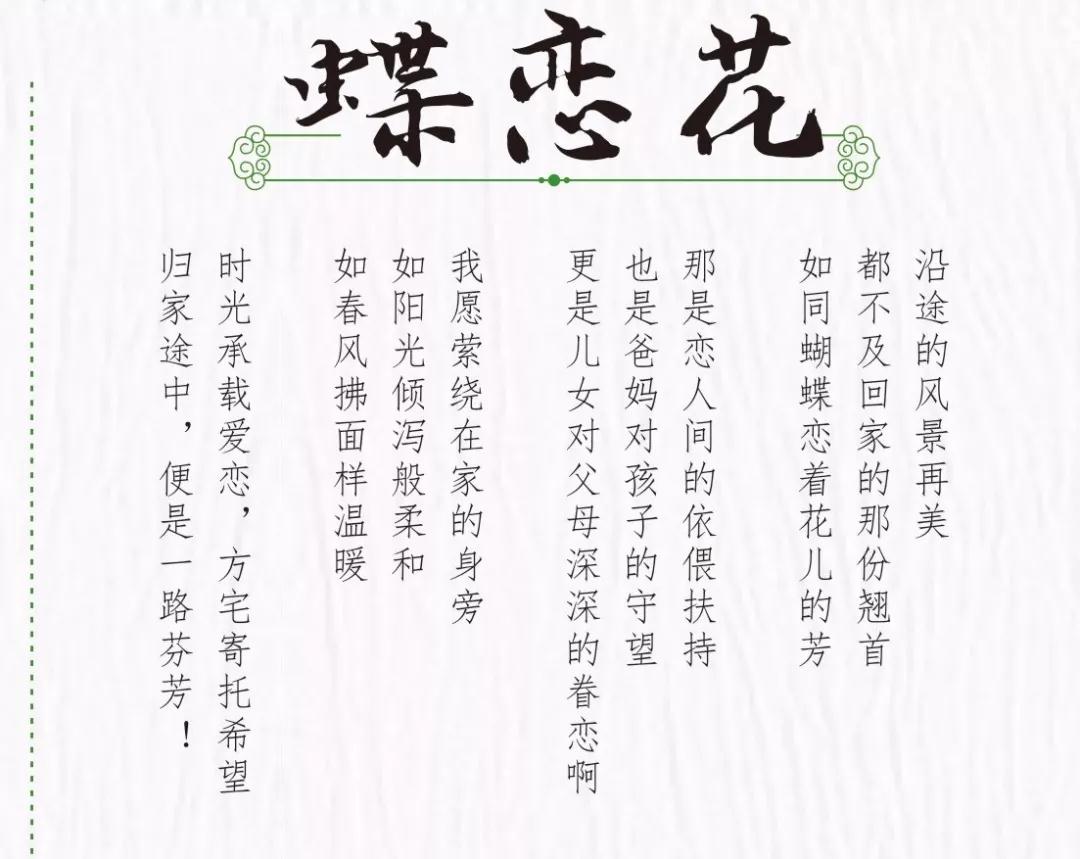 蝶恋花
沿途的风景再美
都不及回家的那份翘首
如同蝴蝶恋着花儿的芳
那是恋人间的依偎扶持
也是爸妈对孩子的守望
更是儿女对父母深深的眷恋啊
我愿萦绕在家的身旁
如阳光倾泻般柔和
如春风拂面样温暖
时光承载爱恋，方宅寄托希望
归家途中，便是一路芬芳！